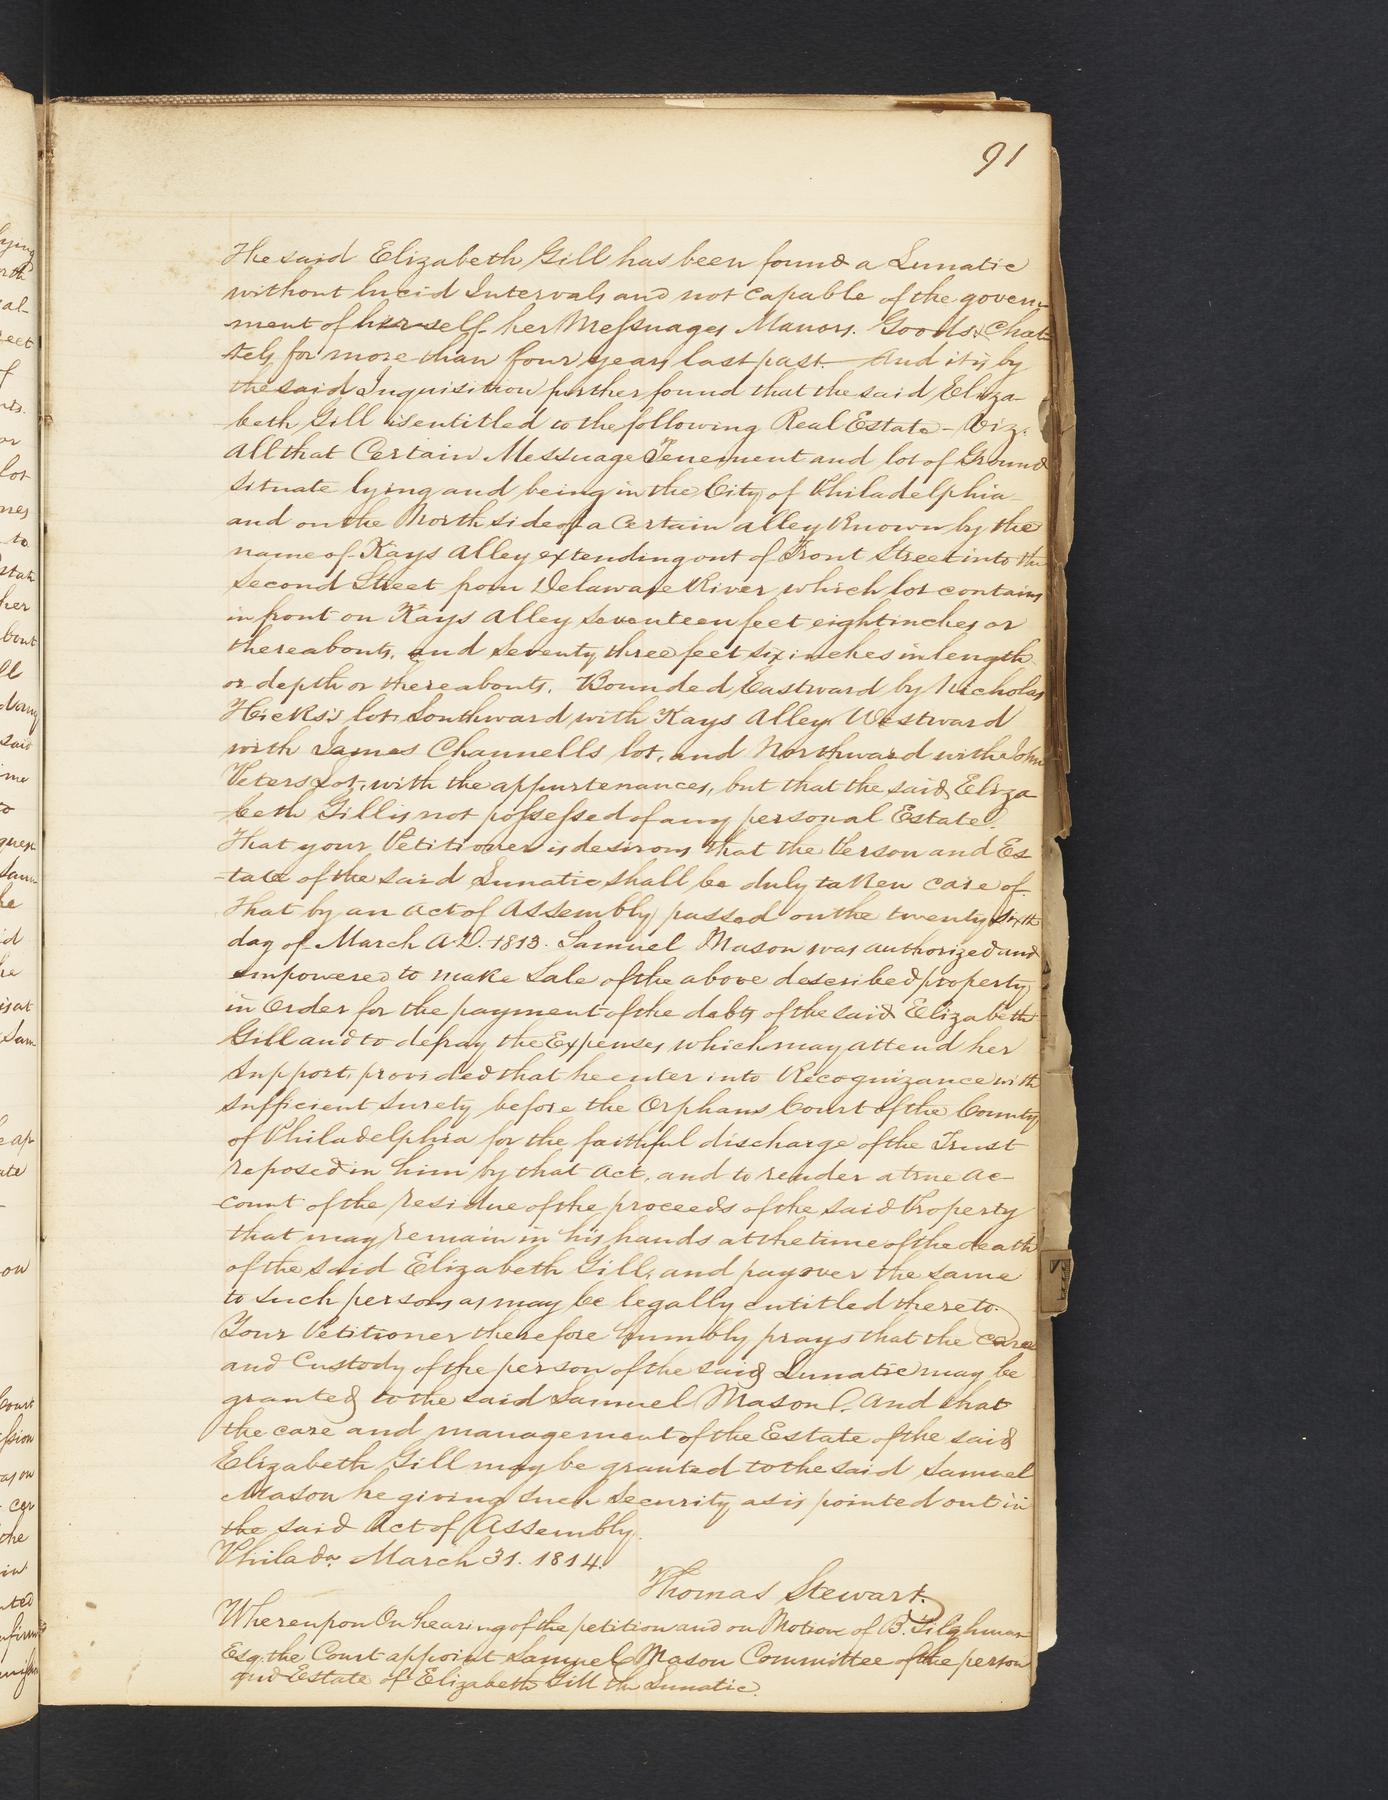 91
The said Elizabeth Gill has been found a Lunatic
without lucid Intervals and not capable of the govern-
ment of herself her Messuages Manors. Goods & Chat-
tels for more than four years last past. And it is by
the said Inquisition further found that the said Eliza-
beth Gill is entitled to the following Real Estate - Viz:
All that Certain Messuage Tenement and lot of Ground
situate lying and being in the City of Philadelphia
and on the North side of a Certain alley Known by the
name of Kays Alley extending out of Front Street into the
second Street from Delaware River which lot contains
in front on Kays Alley seventeen feet eight inches or
thereabouts, and seventy three feet six inches in length
or depth or thereabouts. Bounded Eastward by Nicholas
Hicks's lot, Southward with Kays Alley Westward
with James Channells lot, and Northward with John
Peters Lot, with the appurtenances, but that the said Eliza-
beth Gill is not possessed of any personal Estate.
That your Petitioner is desirous that the Person and Es-
tate of the said Lunatic shall be duly taken care of
That by an act of Assembly passed on the twenty sixth
day of March A.D. 1813. Samuel Mason was authorized and
empowered to make Sale of the above described property
in Order for the payment of the debts of the said Elizabeth
Gill and to defray the Expenses which may attend her
Support, provided that he enter into Recognizance with
sufficient surety before the Orphans Court of the County
of Philadelphia for the faithful discharge of the Trust
reposed in him by that Act, and to render a true ac-
count of the residue of the proceeds of the said Property
that may remain in his hands at the time of the death
of the said Elizabeth Gill, and pay over the same
to such persons as may be legally entitled thereto.
Your Petitioner therefore humbly prays that the care
and Custody of the person of the said Lunatic may be
granted to the said Samuel Mason. And that
the care and management of the Estate of the said
Elizabeth Gill may be granted to the said Samuel
Mason he giving such security as is pointed out in
the said Act of Assembly.
Philada. March 31. 1814.
Thomas Stewart.
Whereupon On hearing of the petition and on Motion of B. Tilghman
Esq. the Court appoint Samuel Mason Committee of the person
and Estate of Elizabeth Gill the Lunatic.